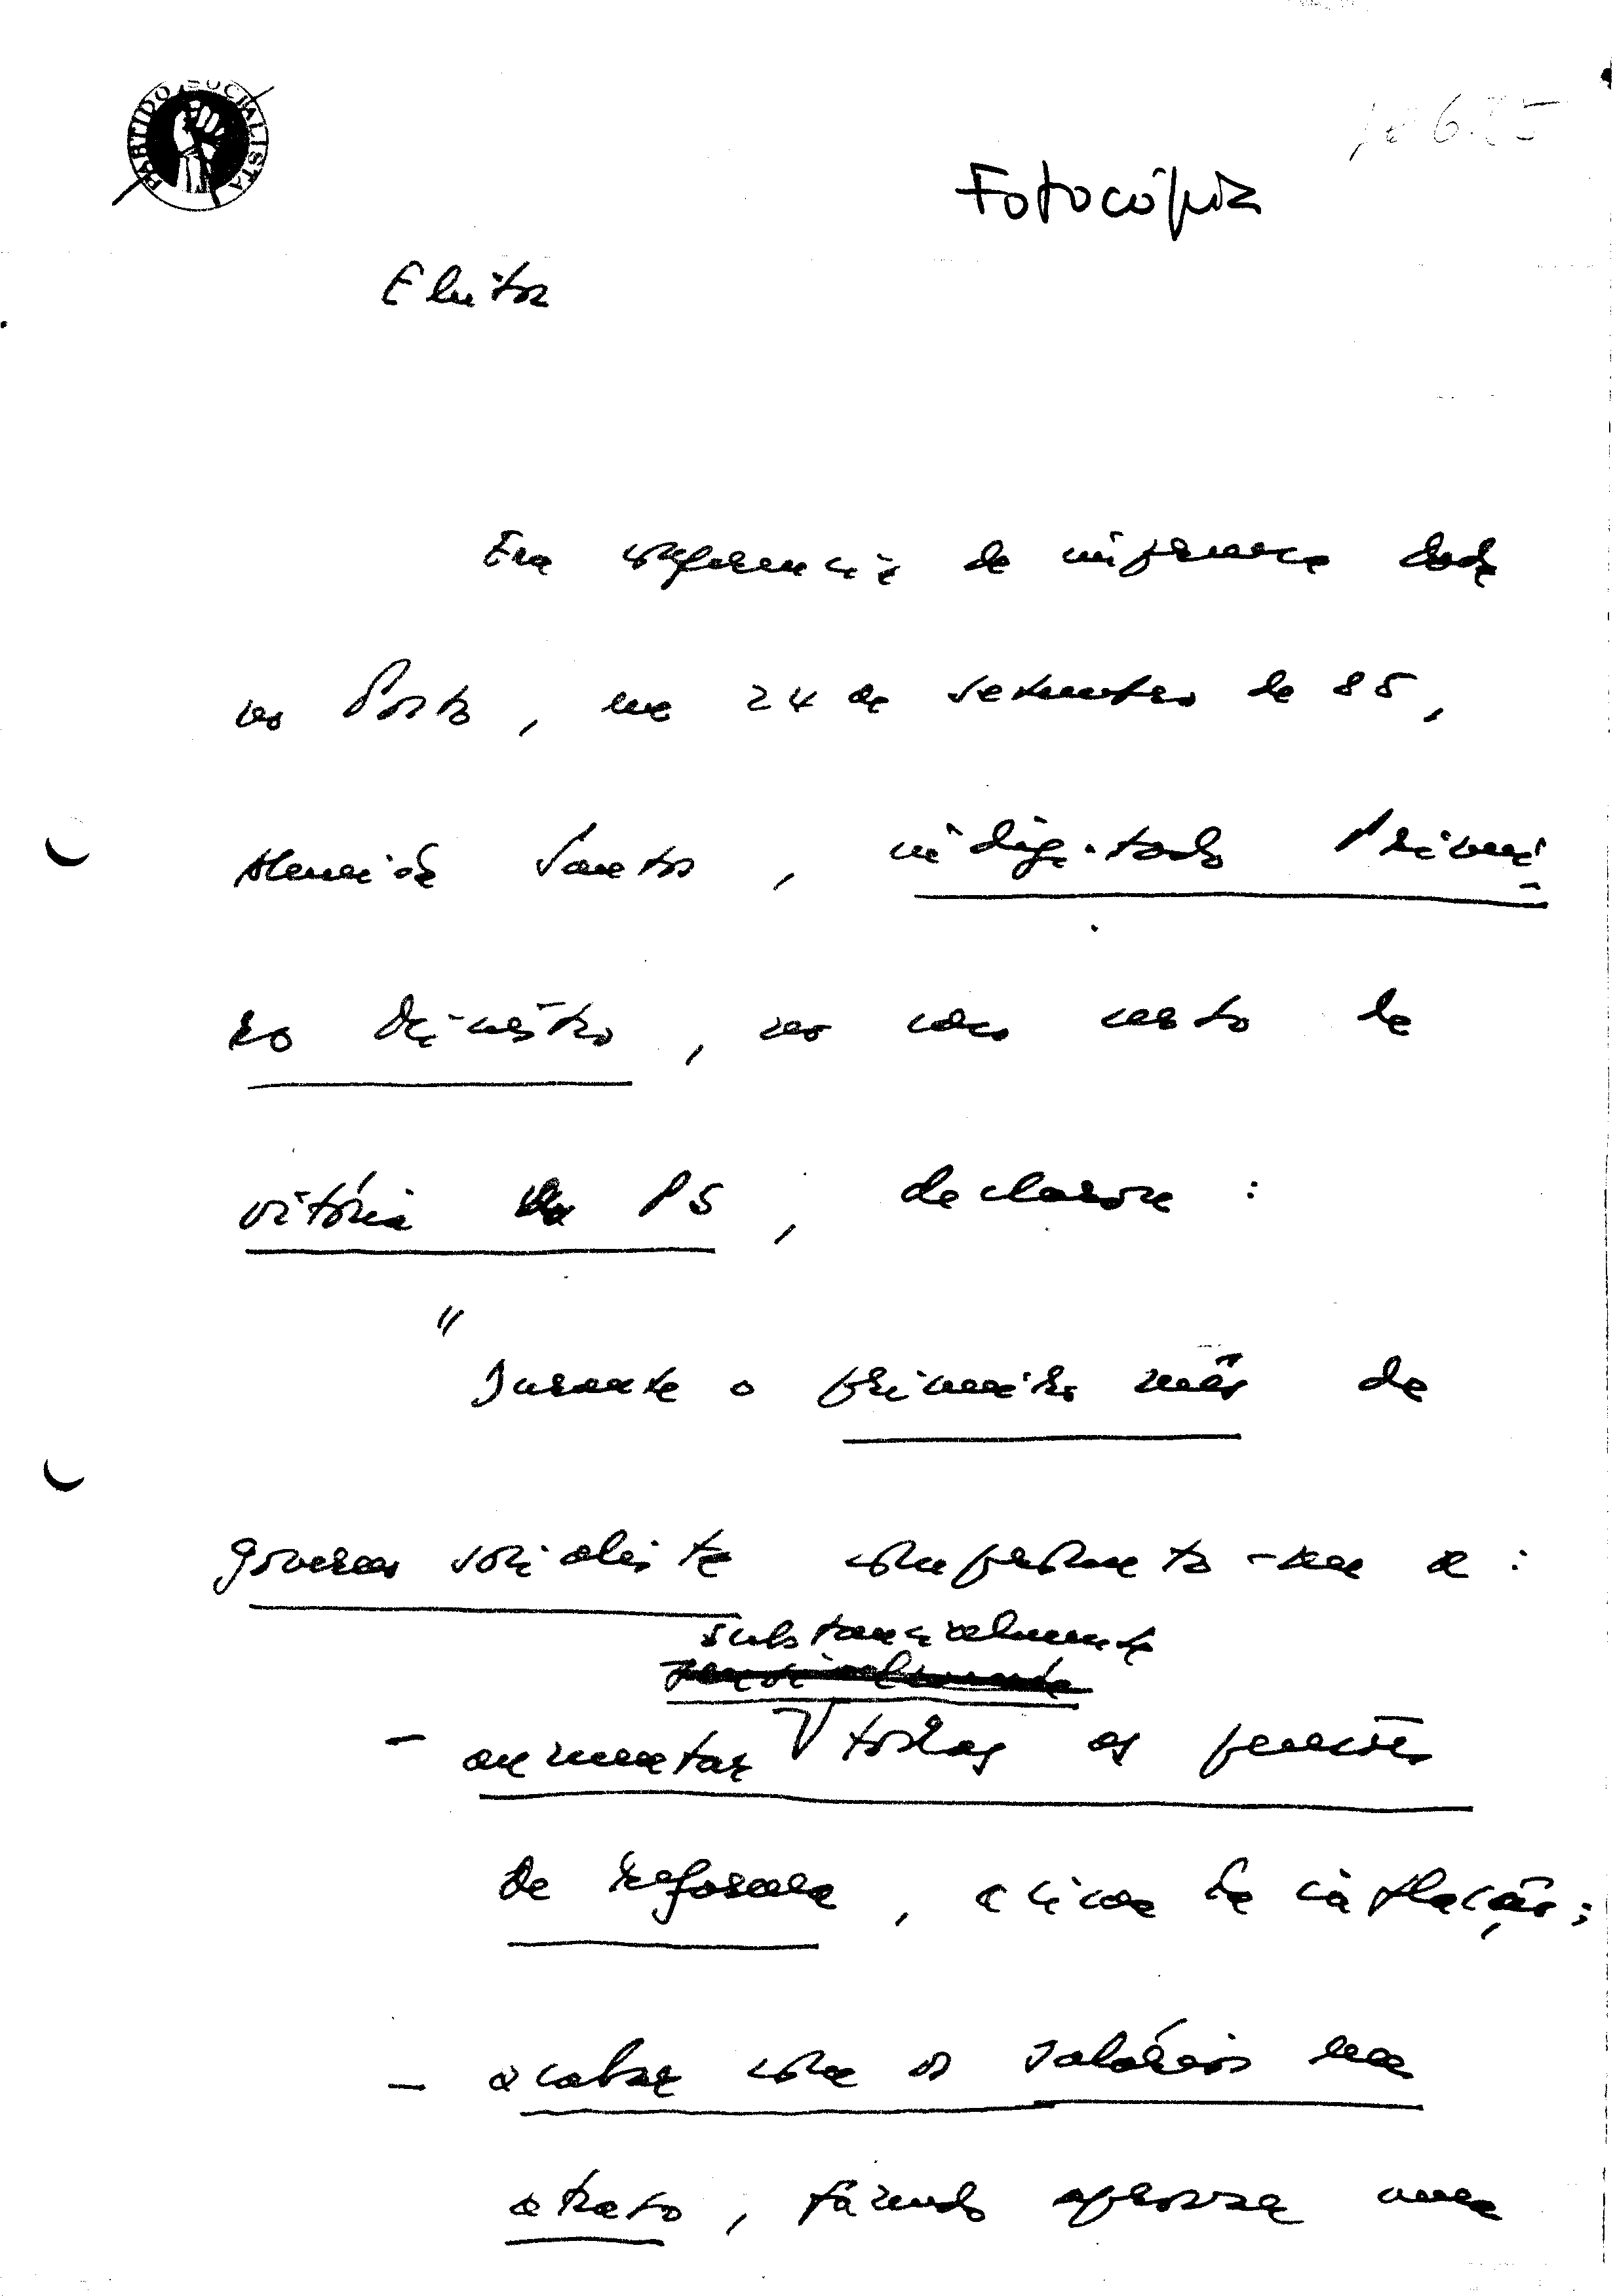 PARTIDO SOCIALISTA
Fotocópia
Eleitor
Em conferência de imprensa dada
no Porto, em 24 de Setembro de 85,
Almeida Santos, indigitado Primei-
ro Ministro, no caso certo de
vitória do PS, declarou:
"
Durante o primeiro mês de
governo socialista comprometo-me a:
substancialmente
- aumentar todas as pensões
de reforma, acima da inflação;
- acabar com os salários em
atraso, fazendo aprovar uma